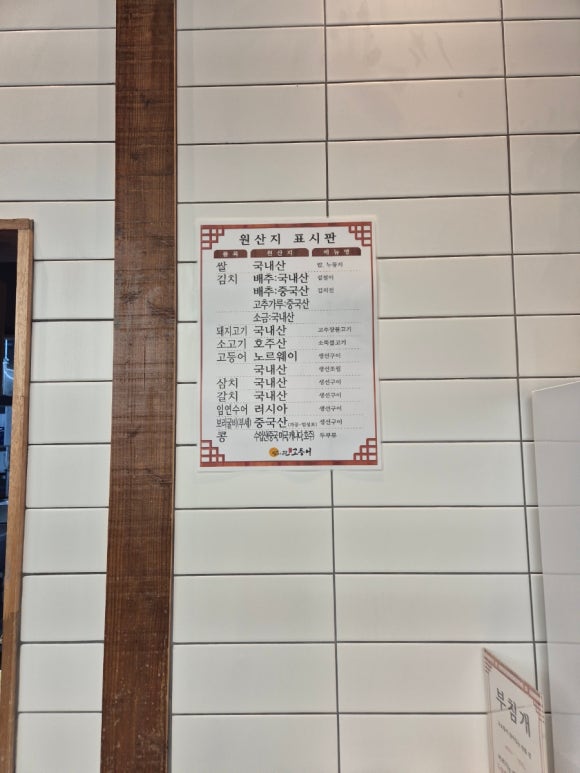 원산지 표시판
품목 원산지 메뉴명
쌀 국내산 밥, 누룽지
김치 배추:국내산 겉절이
배추:중국산 김치전
고추가루:중국산
소금:국내산
돼지고기 국내산 고추장불고기
소고기 호주산 소뚝불고기
고등어 노르웨이 생선구이
국내산 생선조림
삼치 국내산 생선구이
갈치 국내산 생선구이
임연수어 러시아 생선구이
보리굴비(부세) 중국산 생선구이
콩 두부류
고등어
부침개